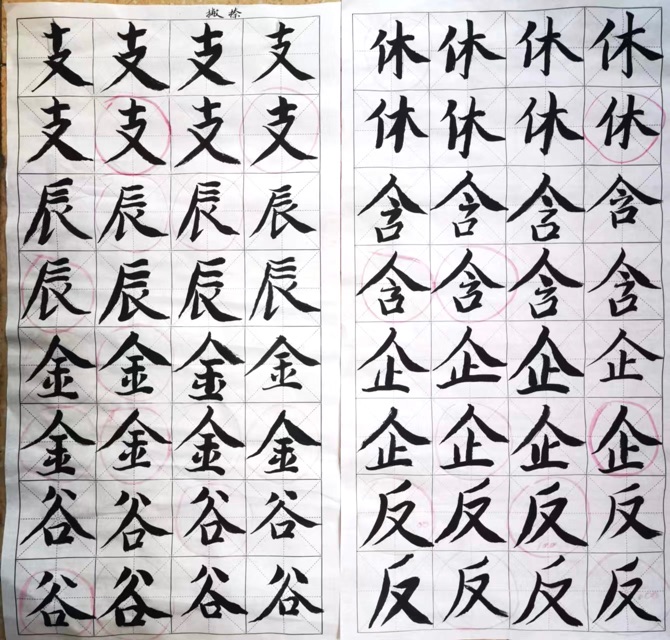 支支支支
支支支支
辰辰辰辰
辰辰辰辰
金金金金
金金金金
谷谷谷谷
谷谷谷谷
休休休休
休休休休
含含含含
含含含含
企企企企
企企企企
反反反反
反反反反